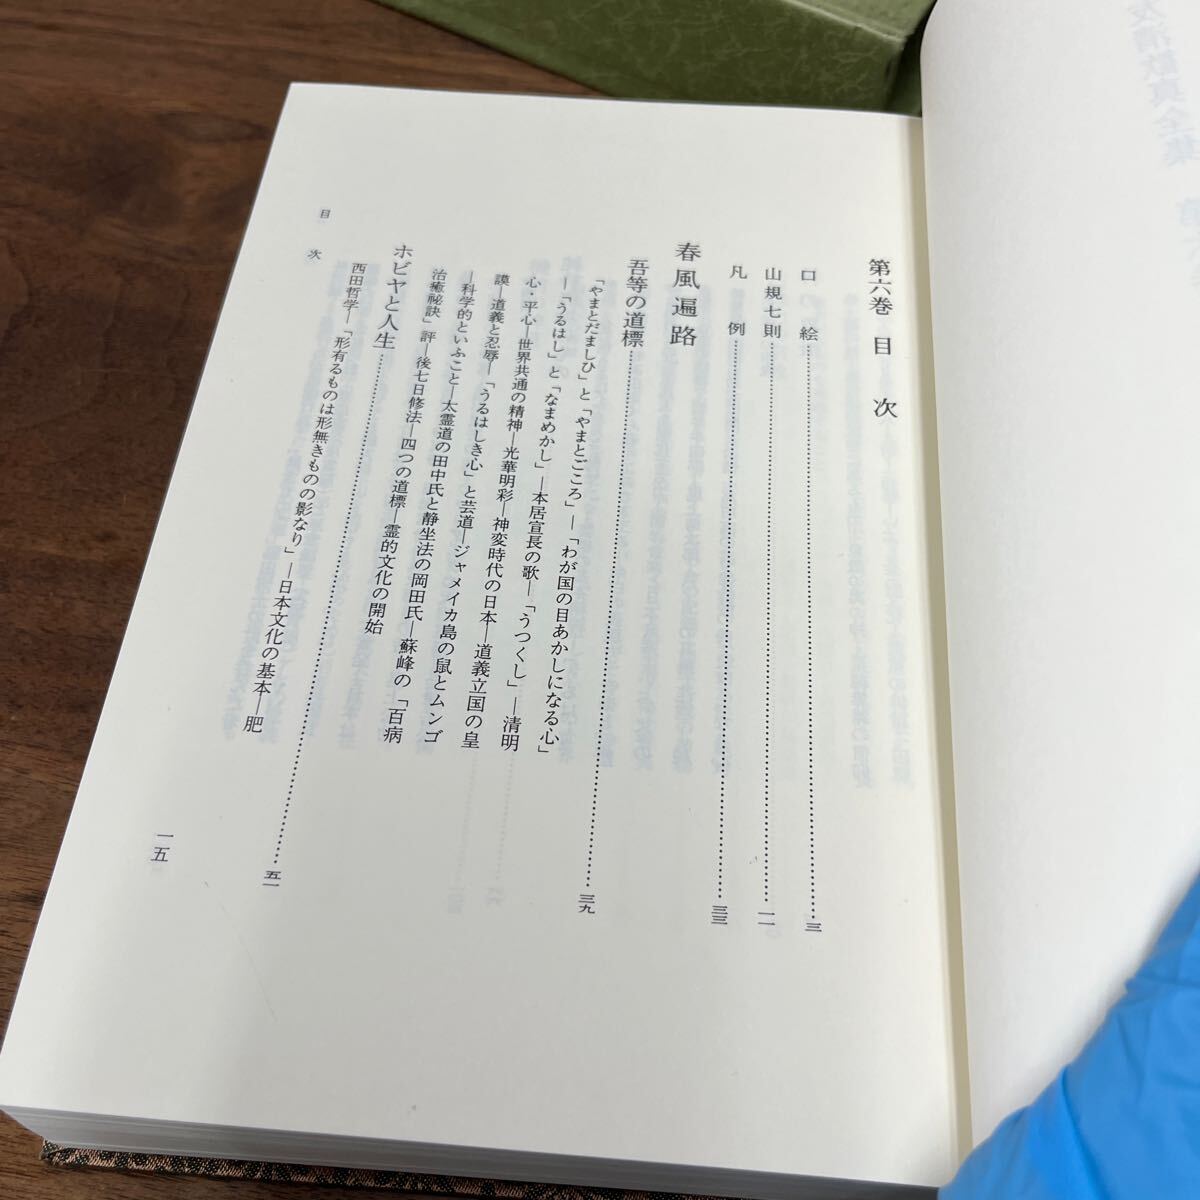 第六巻 目次
口絵…………三
山規七則…………一一
凡例…………三三
春風遍路
吾等の道標…………三九
「やまとだましひ」と「やまとごころ」―「わが国の目あかしになる心」
―「うるはし」と「なまめかし」―本居宣長の歌―「うつくし」―清明
心・平心―世界共通の精神―光華明彩―神変時代の日本―道義立国の皇
謨―道義と忍辱―「うるはしき心」と芸道―ジャメイカ島の鼠とムンゴ
―科学的といふこと―太霊道の田中氏と静坐法の岡田氏―蘇峰の「百病
治癒祕訣」評―後七日修法―四つの道標―霊的文化の開始
ホビヤと人生…………五一
西田哲学―「形有るものは形無きものの影なり」―日本文化の基本―肥
目次
一五